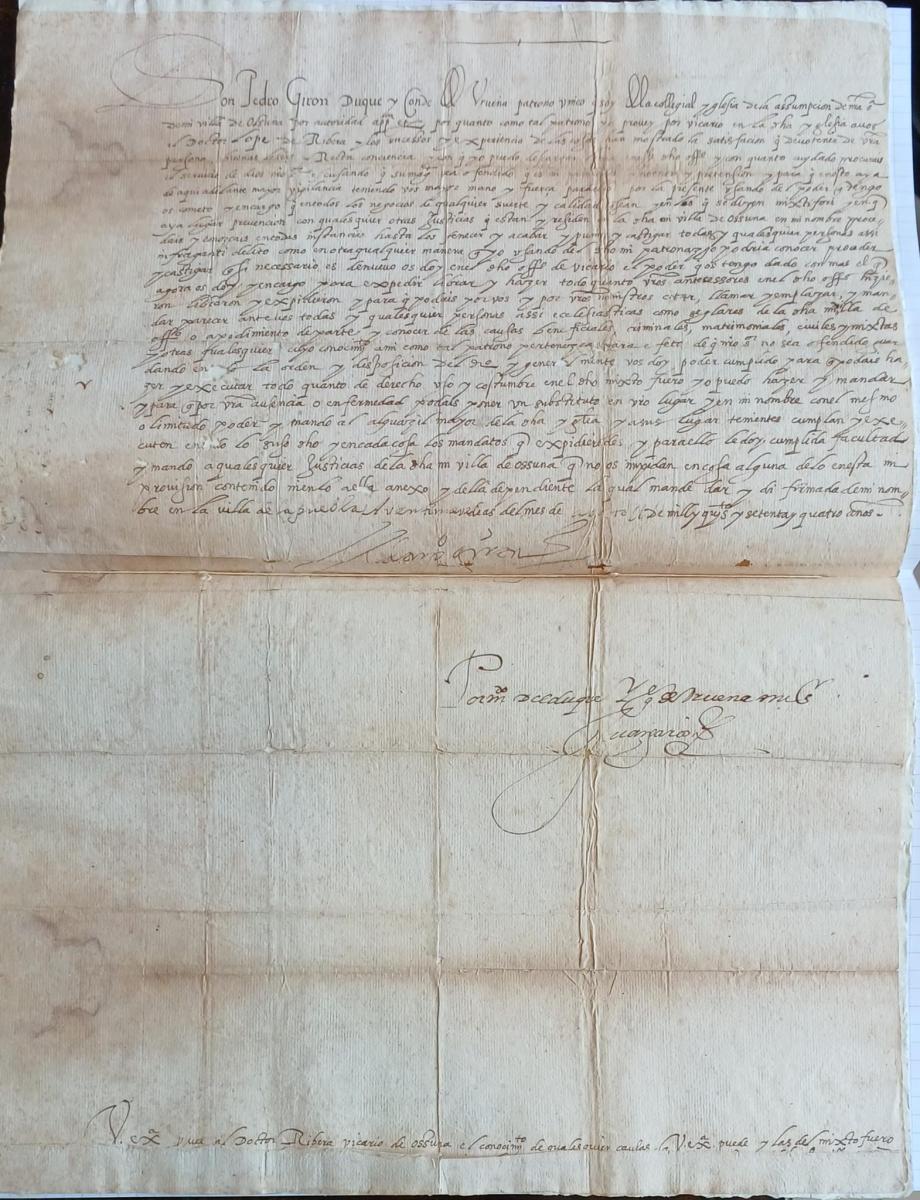 Don Pedro Giron Duque y Conde de Vrueña patrono vnico q soy de la collegial yglesia de la assumpcion de nra sª
de mi villa de Ossuna por autoridad appca etc. por quanto como tal patrono yo provey por vicario en la dha yglesia a vos
el Doctor Lope de Ribera y los sucessos y experiencia de las cosas han mostrado la satisfacion q devo tener de vra
persona buenas letras y Recta conciencia y con q yo puedo descargar la mia en el dho offº y con quanto cuydado procurais
el servicio de dios nro sr escusando q su magd sea ofendido q es mi principal intento y pretension y para q en esto aya
de aqui adelante mayor vigilancia teniendo vos mayor mano y fuerça para ello por la presente vsando del poder q tengo
os cometo y encargo q en todos los negocios de qualquier suerte y calidad q sean y en los q se dizen mixti fori y en q
aya lugar prevencion con qualesquier otras Justicias q estan y residen en la dha mi villa de Ossuna en mi nombre proce
dais y conozcais en todas instancias hasta los fenecer y acabar y punir y castigar todas y qualesquier personas assi
infraganti delito como en otra qualquier manera q yo vsando del dho mi patronazgo podria conocer proceder
y castigar q si necessario es de nuevo os doy en el dho offº de vicario el poder q os tengo dado con mas el q
agora os doy y encargo para expedir librar y hazer todo quanto vros antecessores en el dho offº hizie
ron libraron y expidieron y para q podais por vos y por vros ministros citar, llamar y emplazar, y man
dar parecer ante vos todas y qualesquier personas assi ecclesiasticas como seglares de la dha mi villa de
offº o a pedimiento de parte y conocer de las causas beneficiales, criminales, matrimoniales, civiles y mixtas
y otras qualesquier cuyo conocimtº a mi como tal patrono pertenezca para efeto de q nro sr no sea ofendido guar
dando en todo la orden y disposicion del drº y generalmente vos doy poder cumplido para q podais ha
zer y executar todo quanto de derecho vso y costumbre en el dho mixto fuero yo puedo hazer y mandar
y para q por vra ausencia o enfermedad podais poner vn substituto en vro lugar y en mi nombre con el mesmo
o limitado poder y mando al alguazil mayor de la dha yglia y a sus lugar tenientes cumplan y exe
cuten en todo lo suso dho y en cada cosa los mandatos q expidieredes y para ello le doy cumplida facultad
y mando a qualesquier Justicias de la dha mi villa de ossuna q no os impidan en cosa alguna de lo en esta mi
provision contenido ni en lo a ella anexo y della dependiente la qual mande dar y di firmada de mi nom
bre en la villa de la puebla A veinti nueve dias del mes de DE mill y quisº y setenta y quatro años.
Por mdº del duque y Conde de Vrueña mi sr
V. exª da al Doctor Ribera vicario de ossuna el conocimtº de qualesquier causas q V. exª puede y las del mixto fuero